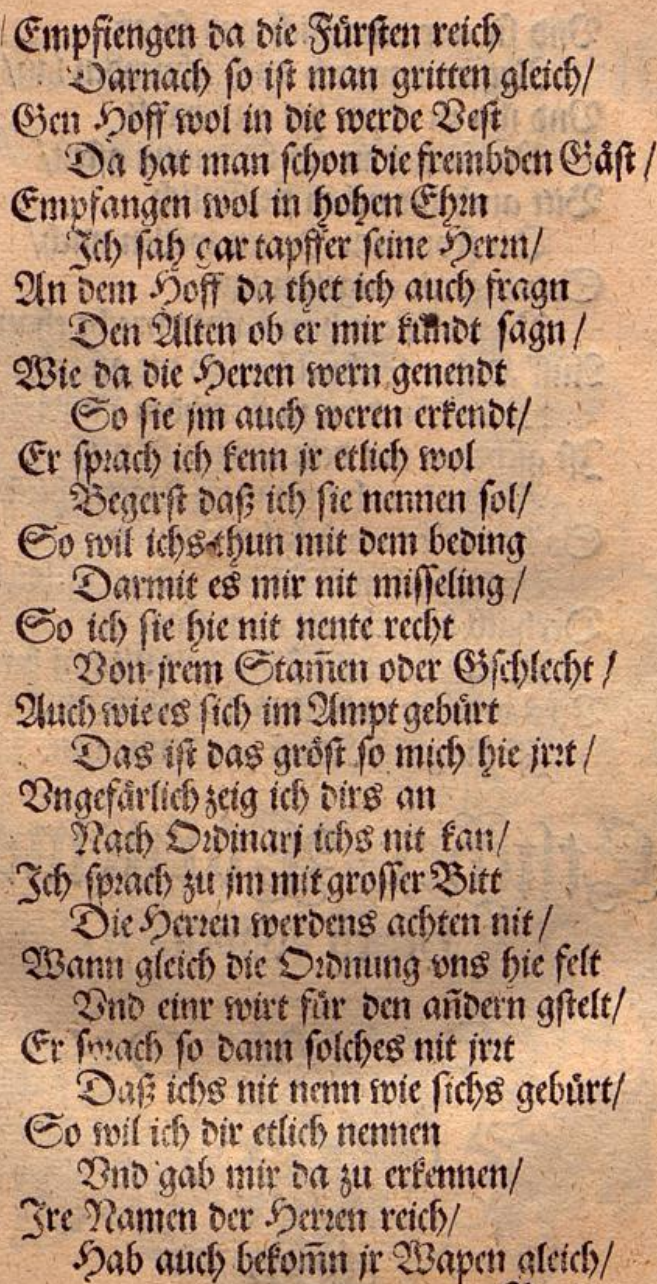 Empfiengen da die Fürsten reich
Darnach so ist man gritten gleich/
Gen Hoff wol in die werde Vest
Da hat man schon die frembden Gäst/
Empfangen wol in hohen Ehrn
Ich sah gar tapffer seine Herrn/
An dem Hoff da thet ich auch fragn
Den Alten ob er mir kündt sagn/
Wie da die Herren wern genendt
So sie jm auch weren erkendt/
Er sprach ich kenn jr etlich wol
Begerst daß ich sie nennen sol/
So wil ichs thun mit dem beding
Darmit es mir nit misseling/
So ich sie hie nit nente recht
Von jrem Stam̃en oder Gschlecht/
Auch wie es sich im Ampt gebürt
Das ist das gröst so mich hie jrrt/
Vngefärlich zeig ich dirs an
Nach Ordinarj ichs nit kan/
Ich sprach zu jm mit grosser Bitt
Die Herren werdens achten nit/
Wann gleich die Ordnung vns hie felt
Vnd einr wirt für den añdern gstelt/
Er sprach so dann solches nit jrrt
Daß ichs nit nenn wie sichs gebürt/
So wil ich dir etlich nennen
Vnd gab mir da zu erkennen/
Ire Namen der Herren reich/
Hab auch bekom̃n jr Wapen gleich/